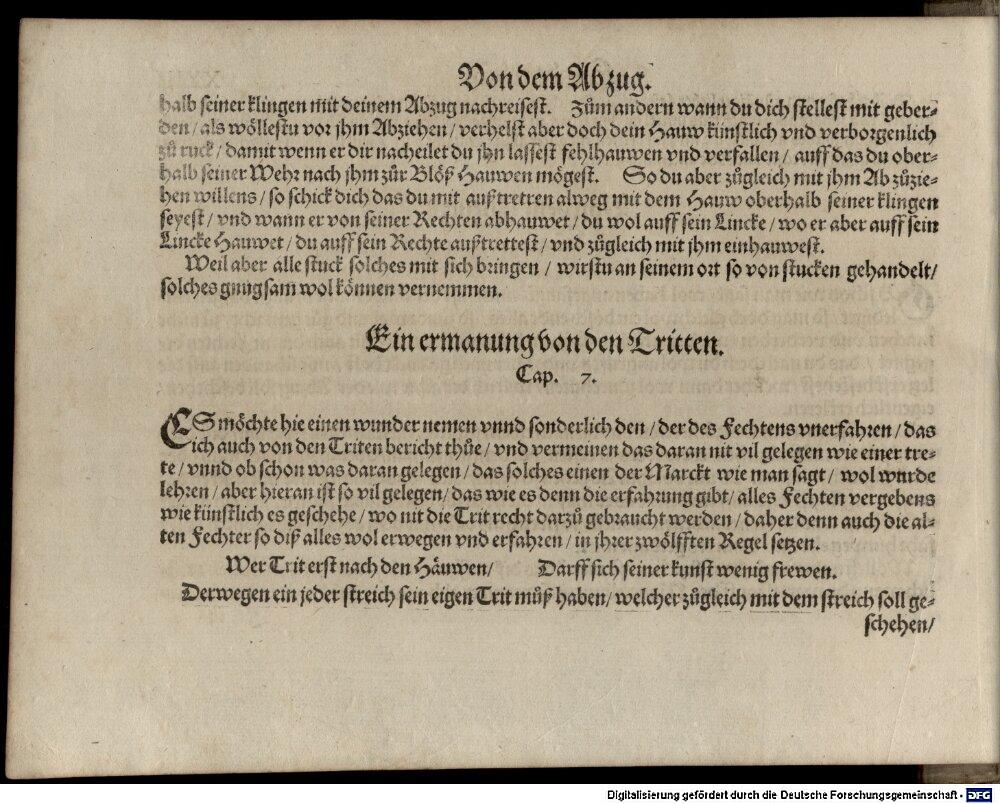 Von dem Abzug.
halb seiner klingen mit deinem Abzug nachreisest. Zům andern wann du dich stellest mit geber-
den / als wöllestu vor jhm Abziehen / verhelst aber doch dein Hauw künstlich vnd verborgenlich
zů ruck / damit wenn er dir nacheilet du jhn lassest fehlhauwen vnd verfallen / auff das du ober-
halb seiner Wehr nach jhm zůr Blöß Hauwen mögest. So du aber zůgleich mit jhm Ab zůzie-
hen willens / so schick dich das du mit außtretten alweg mit dem Hauw oberhalb seiner klingen
seyest / vnd wann er von seiner Rechten abhauwet / du wol auff sein Lincke / wo er aber auff sein
Lincke Hauwet / du auff sein Rechte außtrettest / vnd zůgleich mit jhm einhauwest.
Weil aber alle stuck solches mit sich bringen / wirstu an seinem ort so von stucken gehandelt /
solches gnugsam wol können vernemmen.
Ein ermanung von den Tritten.
Cap. 7.
ES möchte hie einen wunder nemen vnnd sonderlich den / der des Fechtens vnerfahren / das
ich auch von den Triten bericht thůe / vnd vermeinen das daran nit vil gelegen wie einer tre-
te / vnnd ob schon was daran gelegen / das solches einen der Marckt wie man sagt / wol wurde
lehren / aber hieran ist so vil gelegen / das wie es denn die erfahrung gibt / alles Fechten vergebens
wie künstlich es geschehe / wo nit die Trit recht darzů gebraucht werden / daher denn auch die al-
ten Fechter so diß alles wol erwegen vnd erfahren / in jhrer zwölfften Regel setzen.
Wer Trit erst nach den Häuwen / Darff sich seiner kunst wenig frewen.
Derwegen ein jeder streich sein eigen Trit můß haben / welcher zůgleich mit dem streich soll ge-
schehen /
Digitalisierung gefördert durch die Deutsche Forschungsgemeinschaft - DFG